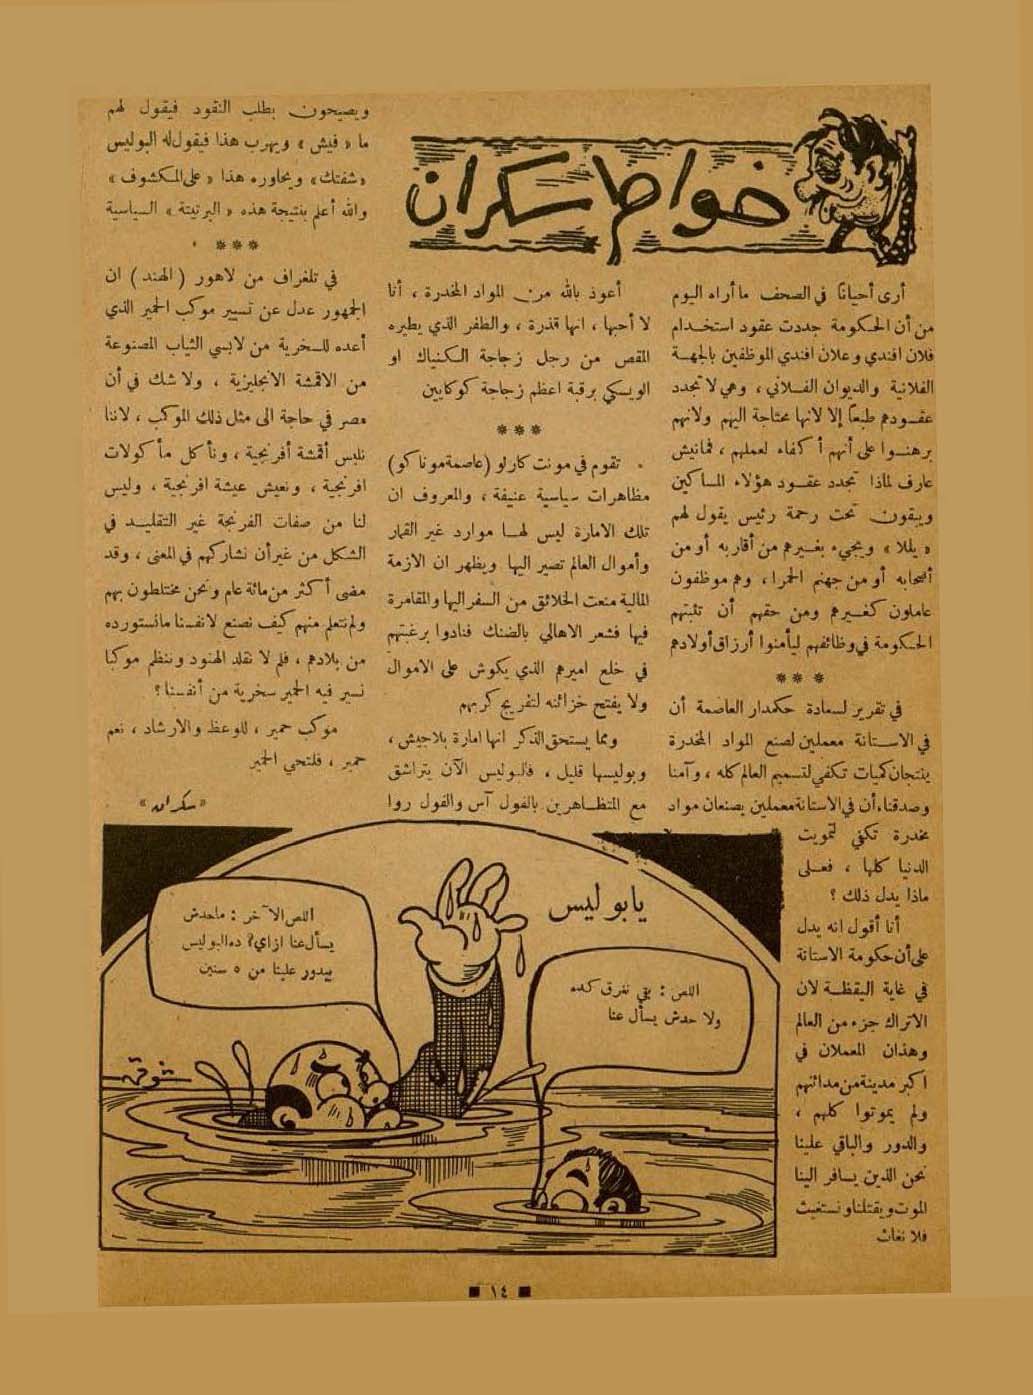 خواطر سكران
أرى أحيانًا في الصحف ما أراه اليوم
من أن الحكومة جددت عقود استخدام
فلان افندي وعلان افندي الموظفين بالجهة
الفلانية والديوان الفلاني ، وهي لا تجدد
عقودهم طبعًا إلا لانها محتاجة اليهم ولانهم
برهنوا على أنهم أكفاء لعملهم ، فمانيش
عارف لماذا تجدد عقود هؤلاء المساكين
ويبقون تحت رحمة رئيس يقول لهم
« يللا » ويجيء بغيرهم من أقاربه أو من
أصحابه أو من جهنم الحمرا ، وهم موظفون
عاملون كغيرهم ومن حقهم أن تثبتهم
الحكومة في وظائفهم ليأمنوا أرزاق أولادهم
***
في تقرير لسعادة حكمدار العاصمة أن
في الاستانة معملين لصنع المواد المخدرة
ينتجان كميات تكفي لتسميم العالم كله ، وآمنا
وصدقنا، أن في الاستانة معملين يصنعان مواد
مخدرة تكفي لتمويت
الدنيا كلها ، فعلى
ماذا يدل ذلك ؟
أنا أقول انه يدل
على أن حكومة الاستانة
في غاية اليقظة لان
الاتراك جزء من العالم
وهذان المعملان في
اكبر مدينة من مدائنهم
ولم يموتوا كلهم ،
والدور والباقي علينا
نحن الذين يسافر الينا
الموت ويقتلنا ونستغيث
فلا نغاث
أعوذ بالله من المواد المخدرة ، أنا
لا أحبها ، انها قذرة ، والظفر الذي يطيره
المقص من رجل زجاجة الكنياك او
الويسكي برقبة اعظم زجاجة كوكايين
***
تقوم في مونت كارلو (عاصمة موناكو)
مظاهرات سياسية عنيفة ، والمعروف ان
تلك الامارة ليس لها موارد غير القمار
وأموال العالم تصير اليها ويظهر ان الازمة
المالية منعت الخلائق من السفر اليها والمقامرة
فيها فشعر الاهالي بالضنك فنادوا برغبتهم
في خلع اميرهم الذي يكوش على الاموال
ولا يفتح خزائنه لتفريج كربهم
ومما يستحق الذكر انها امارة بلا جيش ،
وبوليسها قليل ، فالبوليس الآن يتراشق
مع المتظاهرين بالفول آس والفول روا
ويصيحون بطلب النقود فيقول لهم
ما « فيش » ويهرب هذا فيقول له البوليس
« شفتك » ويحاوره هذا « على المكشوف »
والله أعلم بنتيجة هذه « البرتيتة » السياسية
***
في تلغراف من لاهور ( الهند ) ان
الجمهور عدل عن تسيير موكب الحمير الذي
أعده للسخرية من لابسي الثياب المصنوعة
من الاقمشة الانجليزية ، ولا شك في أن
مصر في حاجة الى مثل ذلك الموكب ، لاننا
نلبس أقمشة أفرنجية ، ونأكل مأكولات
افرنجية ، ونعيش عيشة افرنجية ، وليس
لنا من صفات الفرنجة غير التقليد في
الشكل من غير أن نشاركهم في المعنى ، وقد
مضى أكثر من مائة عام ونحن مختلطون بهم
ولم نتعلم منهم كيف نصنع لانفسنا ما نستورده
من بلادهم ، فلم لا نقلد الهنود وننظم موكبا
نسير فيه الحمير سخرية من أنفسنا ؟
موكب حمير ، للوعظ والارشاد ، نعم
حمير ، فلتحي الحمير
« سكران »
يا بوليس
اللص : بقى نغرق كده
ولا حدش يسأل عنا
اللص الآخر : ماحدش
يسأل عنا ازاي؟ ده البوليس
بيدور علينا من ٥ سنين
١٤